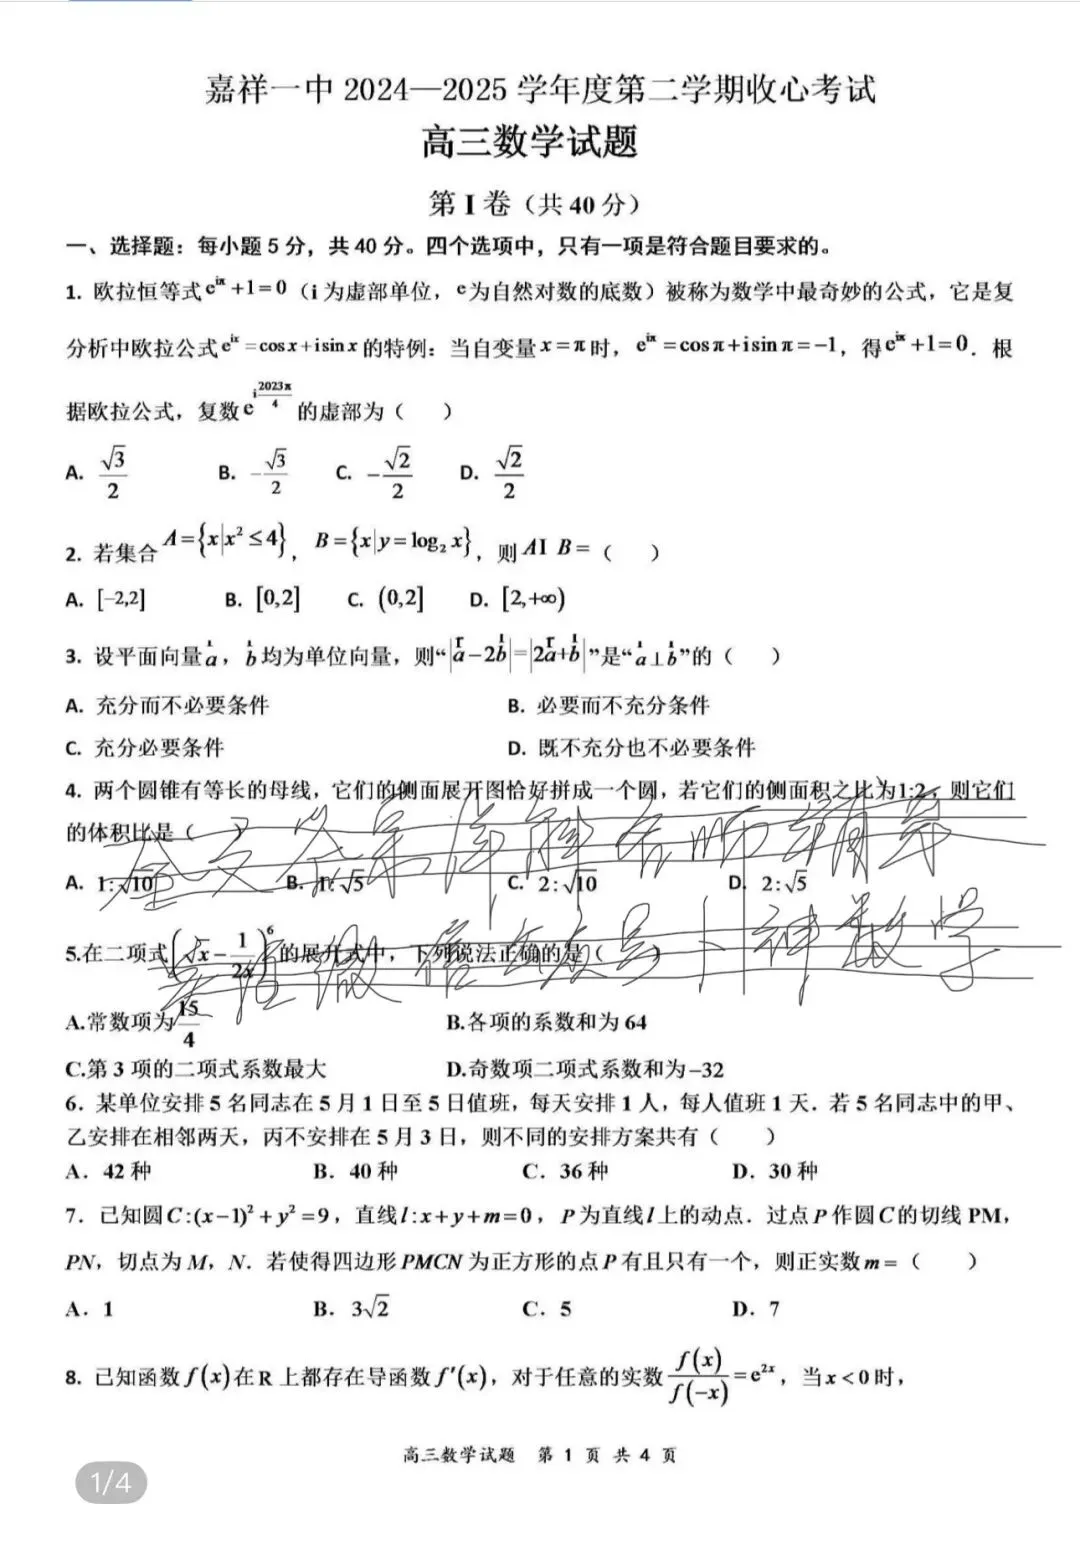 嘉祥一中 2024—2025 学年度第二学期收心考试
高三数学试题
第 I 卷（共 40 分）
一、选择题：每小题 5 分，共 40 分。四个选项中，只有一项是符合题目要求的。
1. 欧拉恒等式 e^{iπ}+1=0（i 为虚部单位，e为自然对数的底数）被称为数学中最奇妙的公式，它是复
分析中欧拉公式 e^{ix}=cos x+i sin x 的特例：当自变量 x=π 时，e^{iπ}=cos π+i sin π=−1，得 e^{iπ}+1=0．根
据欧拉公式，复数 e^{i\frac{2023π}{4}} 的虚部为（ ）
A. \frac{√3}{2} B. -\frac{√3}{2} C. -\frac{√2}{2} D. \frac{√2}{2}
2. 若集合 A={x|x²≤4}，B={x|y=log₂x}，则 AI B=（ ）
A. [−2,2] B. [0,2] C. (0,2] D. [2,+∞)
3. 设平面向量 a，b 均为单位向量，则“|a−2b|=|2a+b|”是“a⊥b”的（ ）
A. 充分而不必要条件 B. 必要而不充分条件
C. 充分必要条件 D. 既不充分也不必要条件
4. 两个圆锥有等长的母线，它们的侧面展开图恰好拼成一个圆，若它们的侧面积之比为1:2，则它们
的体积比是（ ）
全文答案详解名师辅导
A. 1:√10 B. 1:√5 C. 2:√10 D. 2:√5
5.在二项式(√x−\frac{1}{2x})^6的展开式中，下列说法正确的是（ ）
微信公众号 卜神数学
A.常数项为\frac{15}{4} B.各项的系数和为 64
C.第 3 项的二项式系数最大 D.奇数项二项式系数和为−32
6．某单位安排 5 名同志在 5 月 1 日至 5 日值班，每天安排 1 人，每人值班 1 天．若 5 名同志中的甲、
乙安排在相邻两天，丙不安排在 5 月 3 日，则不同的安排方案共有（ ）
A．42 种 B．40 种 C．36 种 D．30 种
7．已知圆 C:(x−1)²+y²=9，直线 l:x+y+m=0，P 为直线 l 上的动点．过点 P 作圆 C 的切线 PM，
PN，切点为 M，N．若使得四边形 PMCN 为正方形的点 P 有且只有一个，则正实数 m=（ ）
A．1 B．3√2 C．5 D．7
8. 已知函数 f(x) 在 R 上都存在导函数 f′(x)，对于任意的实数 \frac{f(x)}{f(−x)}=e^{2x}，当 x<0 时，
高三数学试题 第 1 页 共 4 页
1/4